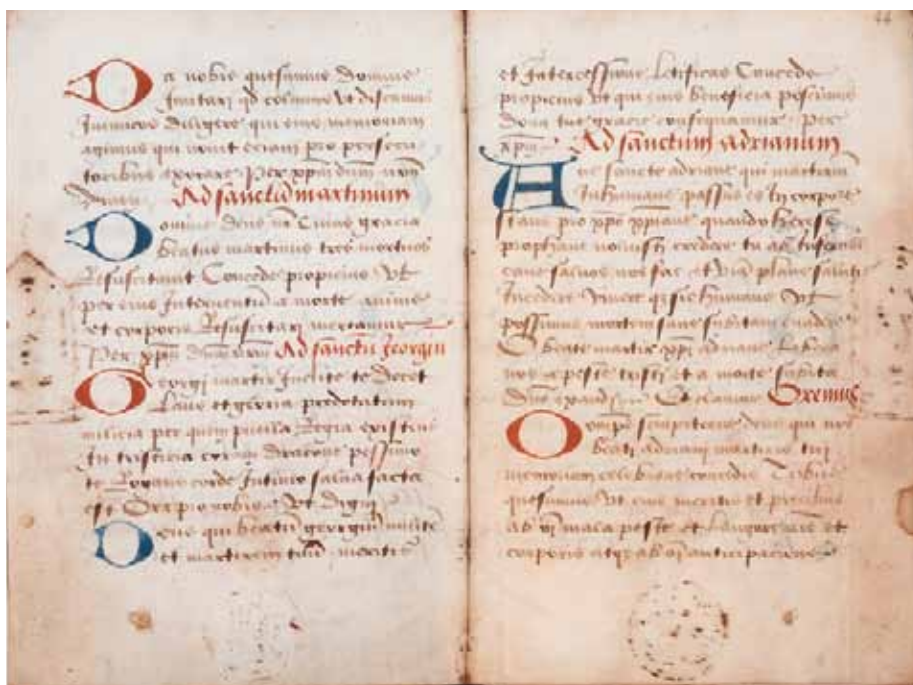 Da nobis quesumus domine
Imitari qd colimus vt discamus
Inimicos diligere qui eius
agimus qui novit eciam pro persecu
toribus exorare Per xpm dnm nrm
Ad sanctu martinum
Domine deus cuius gracia
beatus martinus tres mortuos
Resuscitauit Concede propicius vt
per eius a morte anime
et corporis Resuscitari mereamur
Per xpm Ad sanctu georgiu
Georgi martir Inclite te decet
Laus et gloria predotatum
milicia per quem puella Regia existens
In tristicia coram dracone pessimo
te Rogamus corde Intimo salua facta
est Ora pro nobis Vt digni
Deus qui beatu georgiu milite
et martirem tuu meritis
44
et Intercessione Letificas Concede
propicius vt qui eius beneficia poscimus
dona tue gracie consequamur Per
xpm Ad sanctum adrianum
Aue sancte adriane qui martirium
Inhumane passus es In corpore
pro xpo quando
prophane noluisti credere tu
saluos nos fac et
Incedere humane Vt
possimus mortem subitam euadere
O beate martir xpi adriane Libera
nos a peste tristi et a morte subita
Oremus
Omps sempiterne deus qui nos
beati adriani martiris tui
memoriam celebrare concedis Tribue
quesumus Vt eius meritis et precibus
ab mala peste et Languore et
corporis ab